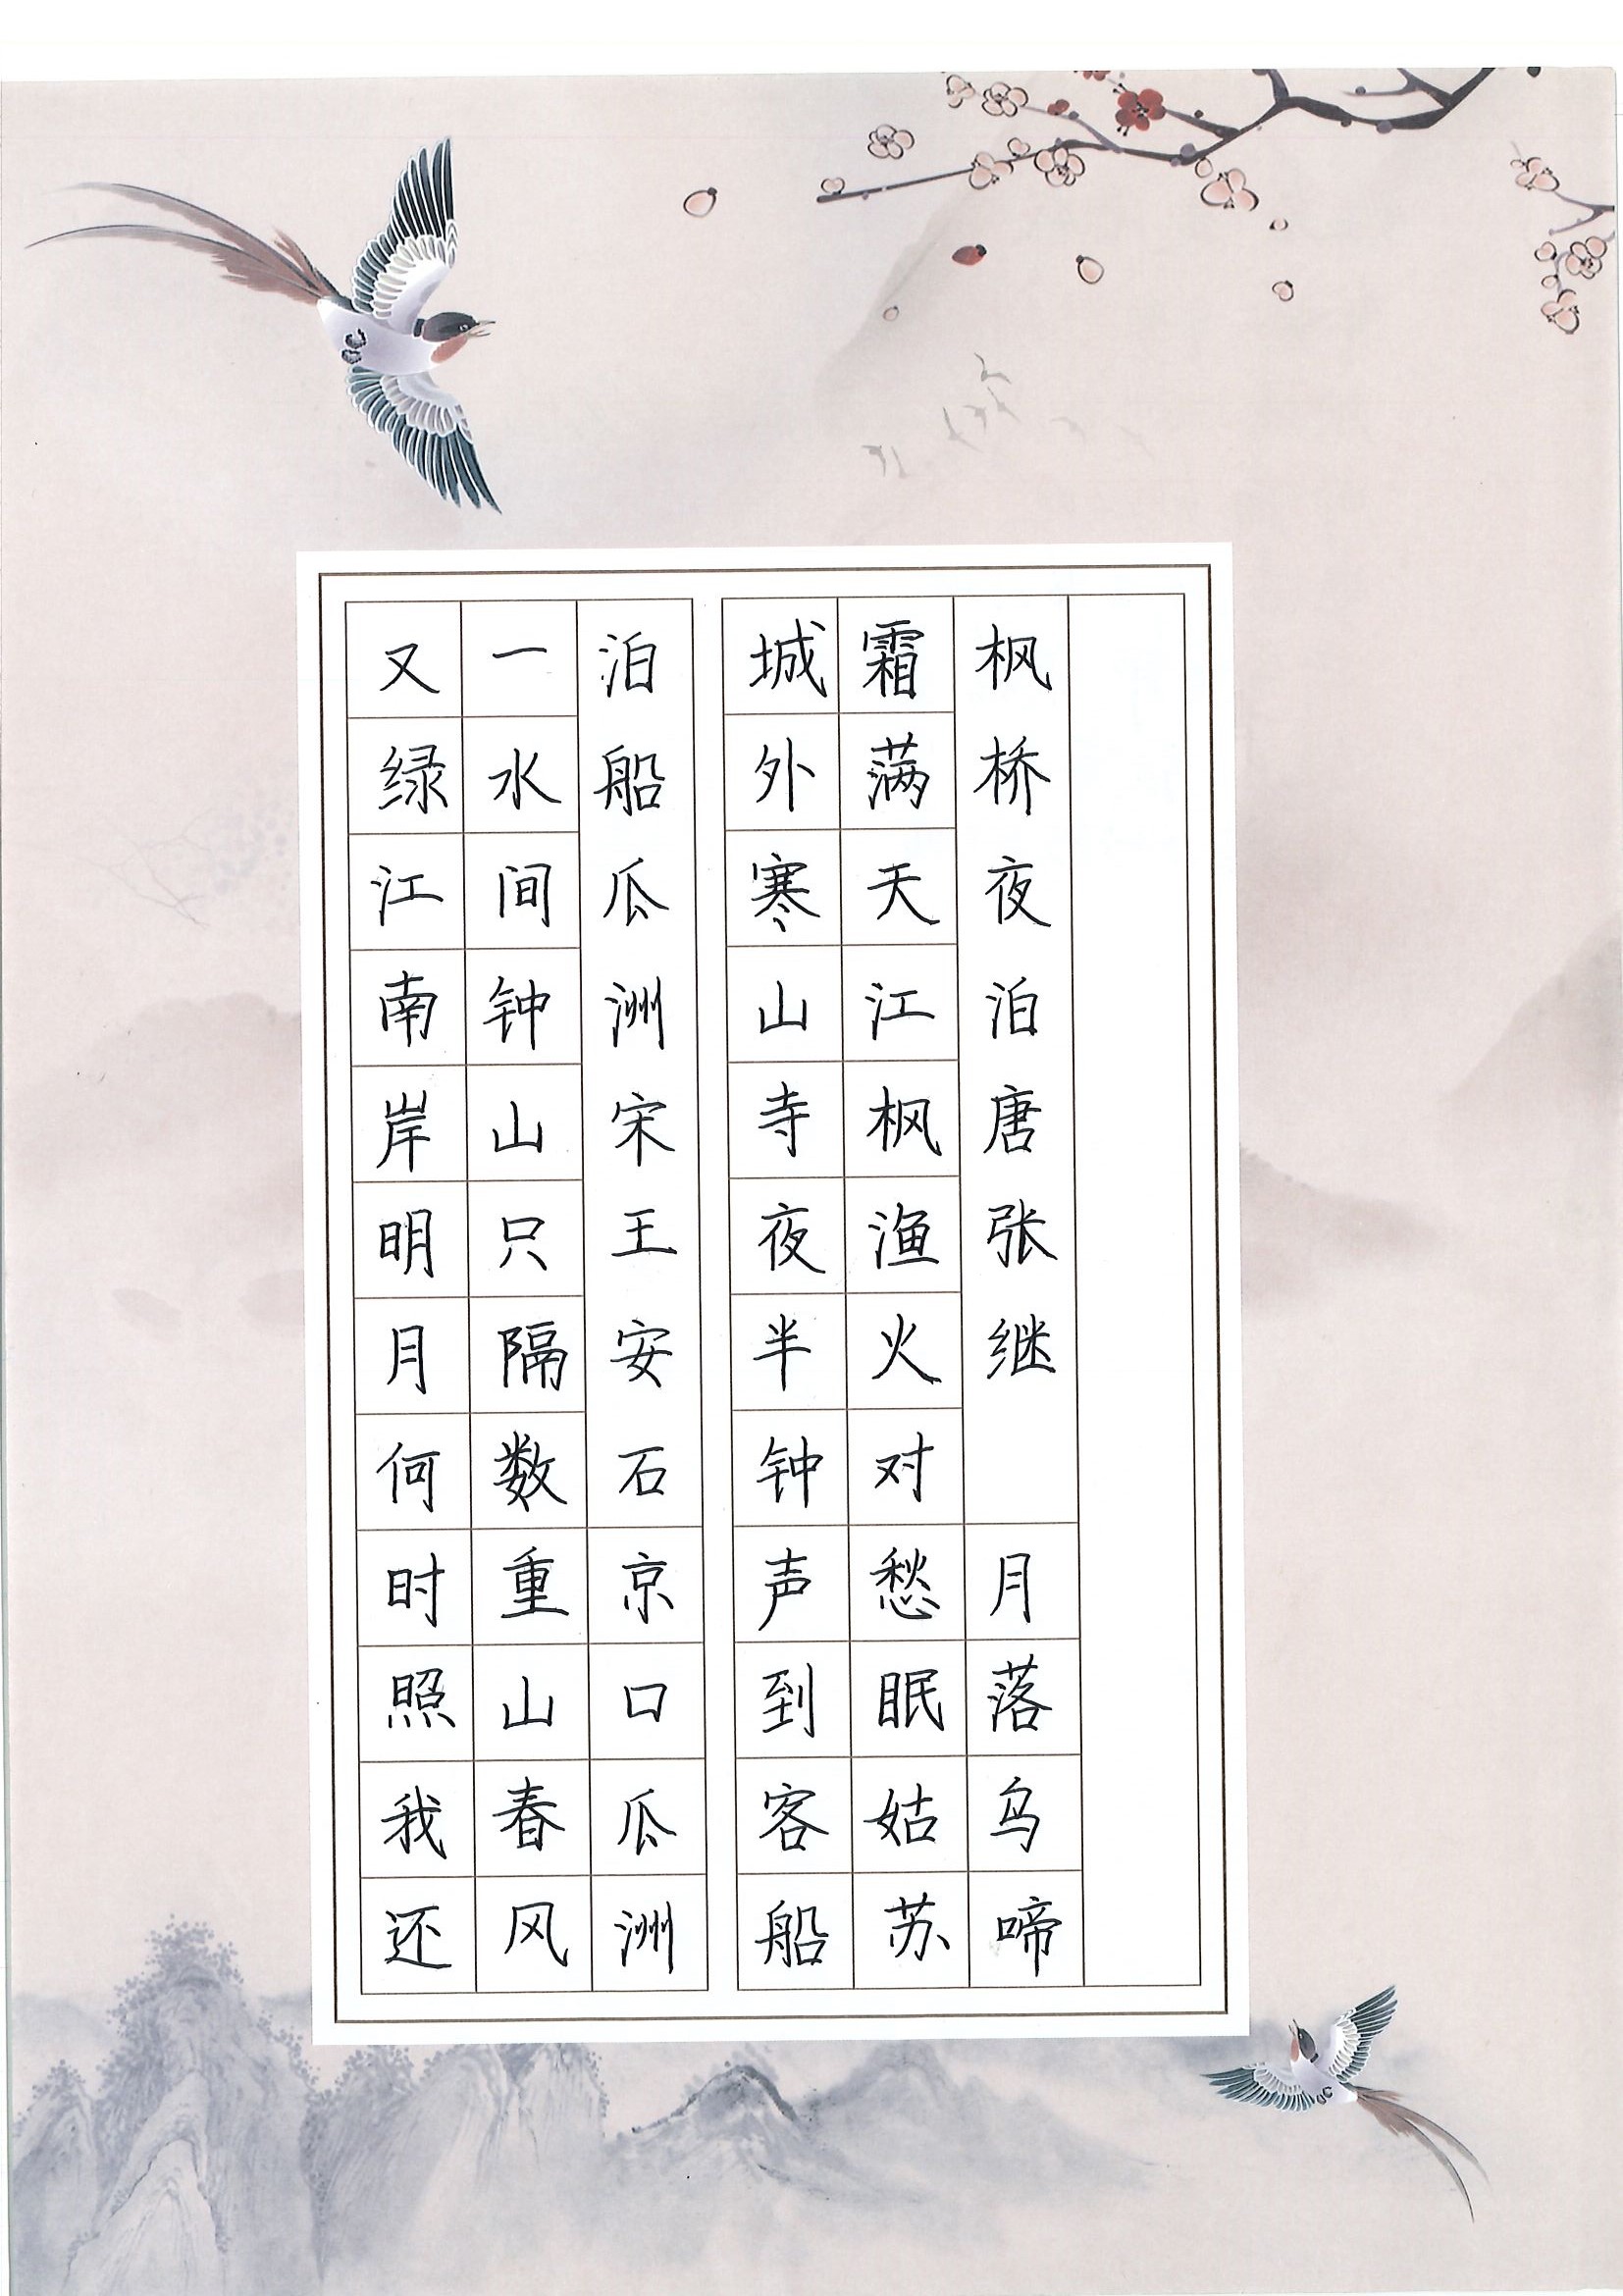 枫桥夜泊唐张继 月落乌啼
霜满天江枫渔火对愁眠姑苏
城外寒山寺夜半钟声到客船
泊船瓜洲宋王安石京口瓜洲
一水间钟山只隔数重山春风
又绿江南岸明月何时照我还